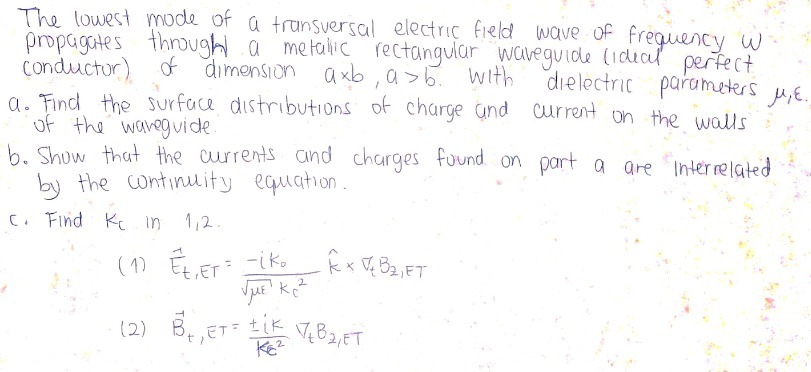 The lowest mode of a transversal electric field wave of frequency w
propagates through a metallic rectangular waveguide (ideal perfect
conductor) of dimension axb, a>b. With dielectric parameters μ,ε.
a. Find the surface distributions of charge and current on the walls
of the waveguide.
b. Show that the currents and charges found on part a are interrelated
by the continuity equation.
c. Find Kc in 1,2.
(1) \vec{E}_{t,ET} = \frac{-iK_0}{\sqrt{με} K_c^2} \hat{k} × ∇_t B_{z,ET}
(2) \vec{B}_{t,ET} = \frac{±iK}{K_c^2} ∇_t B_{z,ET}